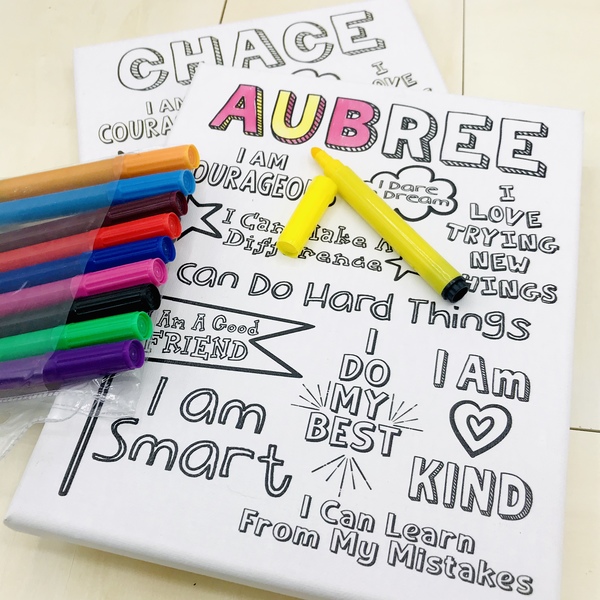 CHACE
I AM
I
AUBREE
I AM
I Dare
Dream
I
LOVE
TRYING
NEW
I Can Make
Difference
Can Do Hard Things
Am A Good
FRIEND
I
DO
MY
BEST
I Am
KIND
I am
Smart
I Can Learn
From My Mistakes